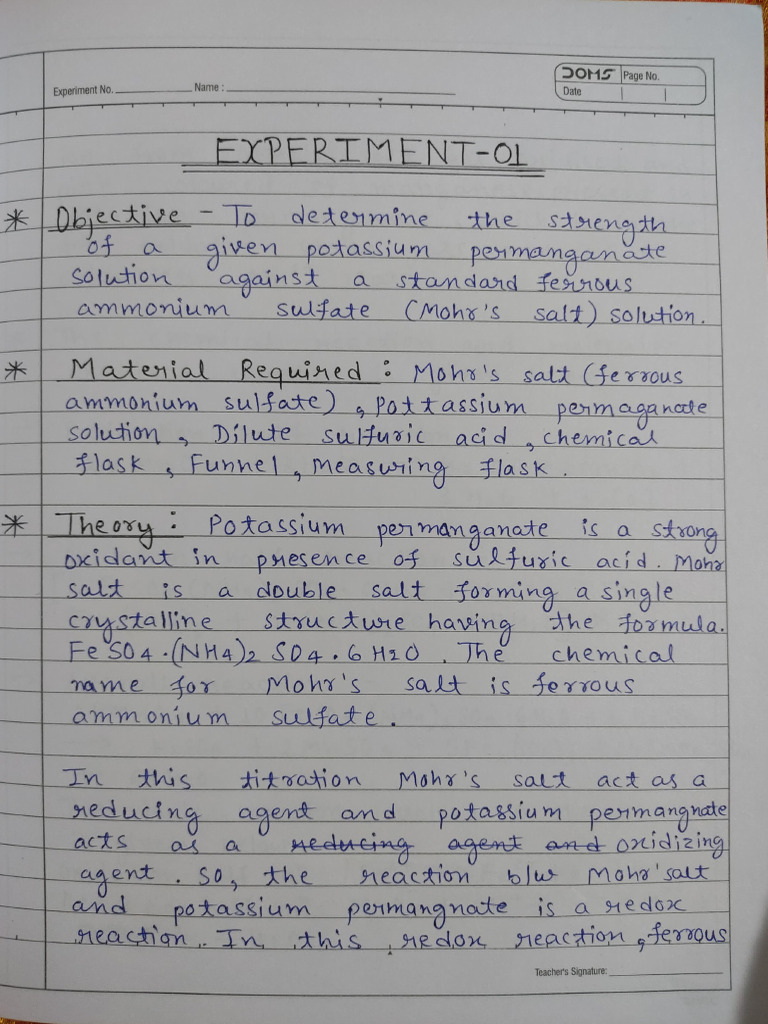 Experiment No. Name :
DOMS Page No.
Date
EXPERIMENT-01
* Objective - To determine the strength
of a given potassium permanganate
solution against a standard ferrous
ammonium sulfate (Mohr's salt) solution.
* Material Required : Mohr's salt (ferrous
ammonium sulfate), pottassium permaganate
solution, Dilute sulfuric acid, chemical
flask, Funnel, measuring flask.
* Theory : Potassium permanganate is a strong
oxidant in presence of sulfuric acid. Mohr
salt is a double salt forming a single
crystalline structure having the formula.
FeSO4.(NH4)2 SO4.6H2O. The chemical
name for Mohr's salt is ferrous
ammonium sulfate.
In this titration Mohr's salt act as a
reducing agent and potassium permangnate
acts as a reducing agent and oxidizing
agent. So, the reaction b/w Mohr'salt
and potassium permangnate is a redox
reaction. In this redox reaction, ferrous
Teacher's Signature: